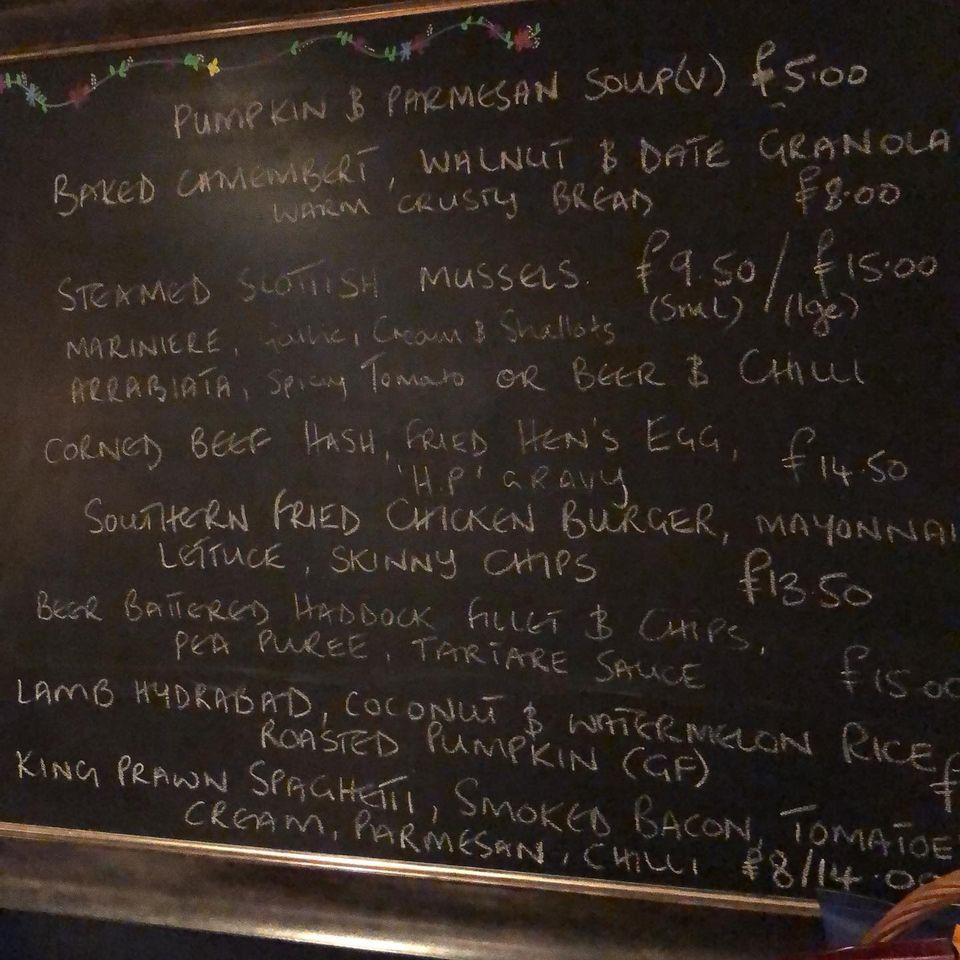 PUMPKIN & PARMESAN SOUP(V) £5.00
BAKED CAMEMBERT, WALNUT & DATE GRANOLA
WARM CRUSTY BREAD £8.00
STEAMED SCOTTISH MUSSELS. £9.50 / £15.00
(Sml) (lge)
MARINIERE, Garlic, Cream & Shallots
ARRABIATA, Spicy Tomato OR BEER & CHILLI
CORNED BEEF HASH, FRIED HEN'S EGG, £14.50
'H.P' GRAVY
SOUTHERN FRIED CHICKEN BURGER, MAYONNAI
LETTUCE, SKINNY CHIPS £13.50
BEER BATTERED HADDOCK FILLET & CHIPS,
PEA PUREE, TARTARE SAUCE £15.00
LAMB HYDRABAD, COCONUT & WATERMELON RICE
ROASTED PUMPKIN (GF) £
KING PRAWN SPAGHETTI, SMOKED BACON, TOMATOE
CREAM, PARMESAN, CHILLI £8/14.00